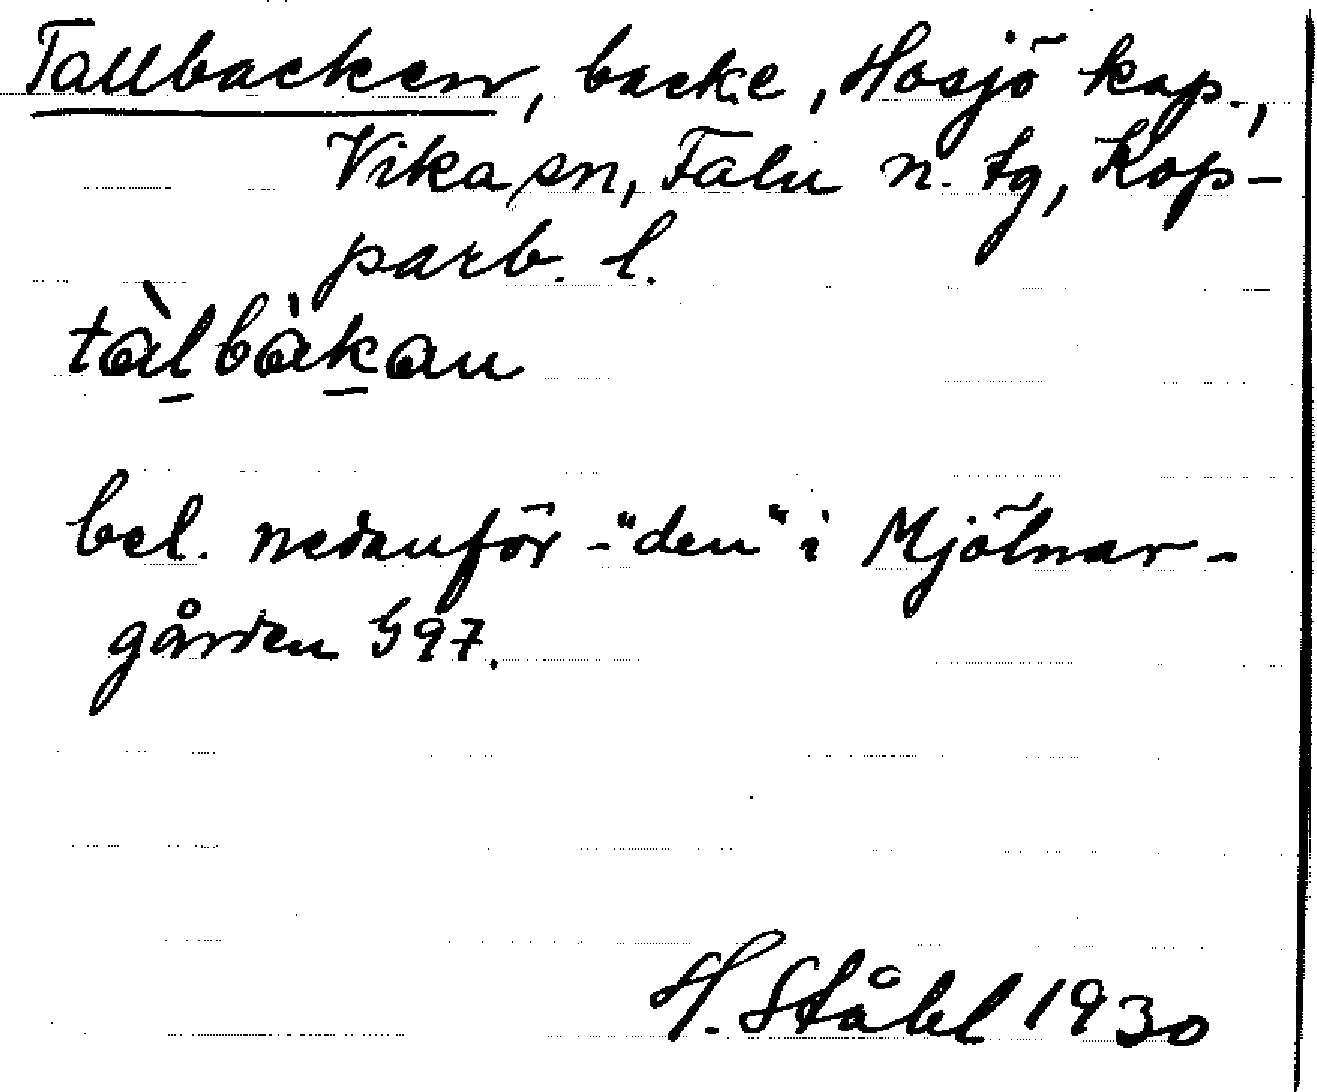 Tallbacken, backe, Hosjö kap.,
Vika sn, Falu n. tg, Kop-
parb. l.
tàl̲bàk̲an
bel. nedanför -"den" i Mjölnar-
gården §97.
H. Ståhl 1930